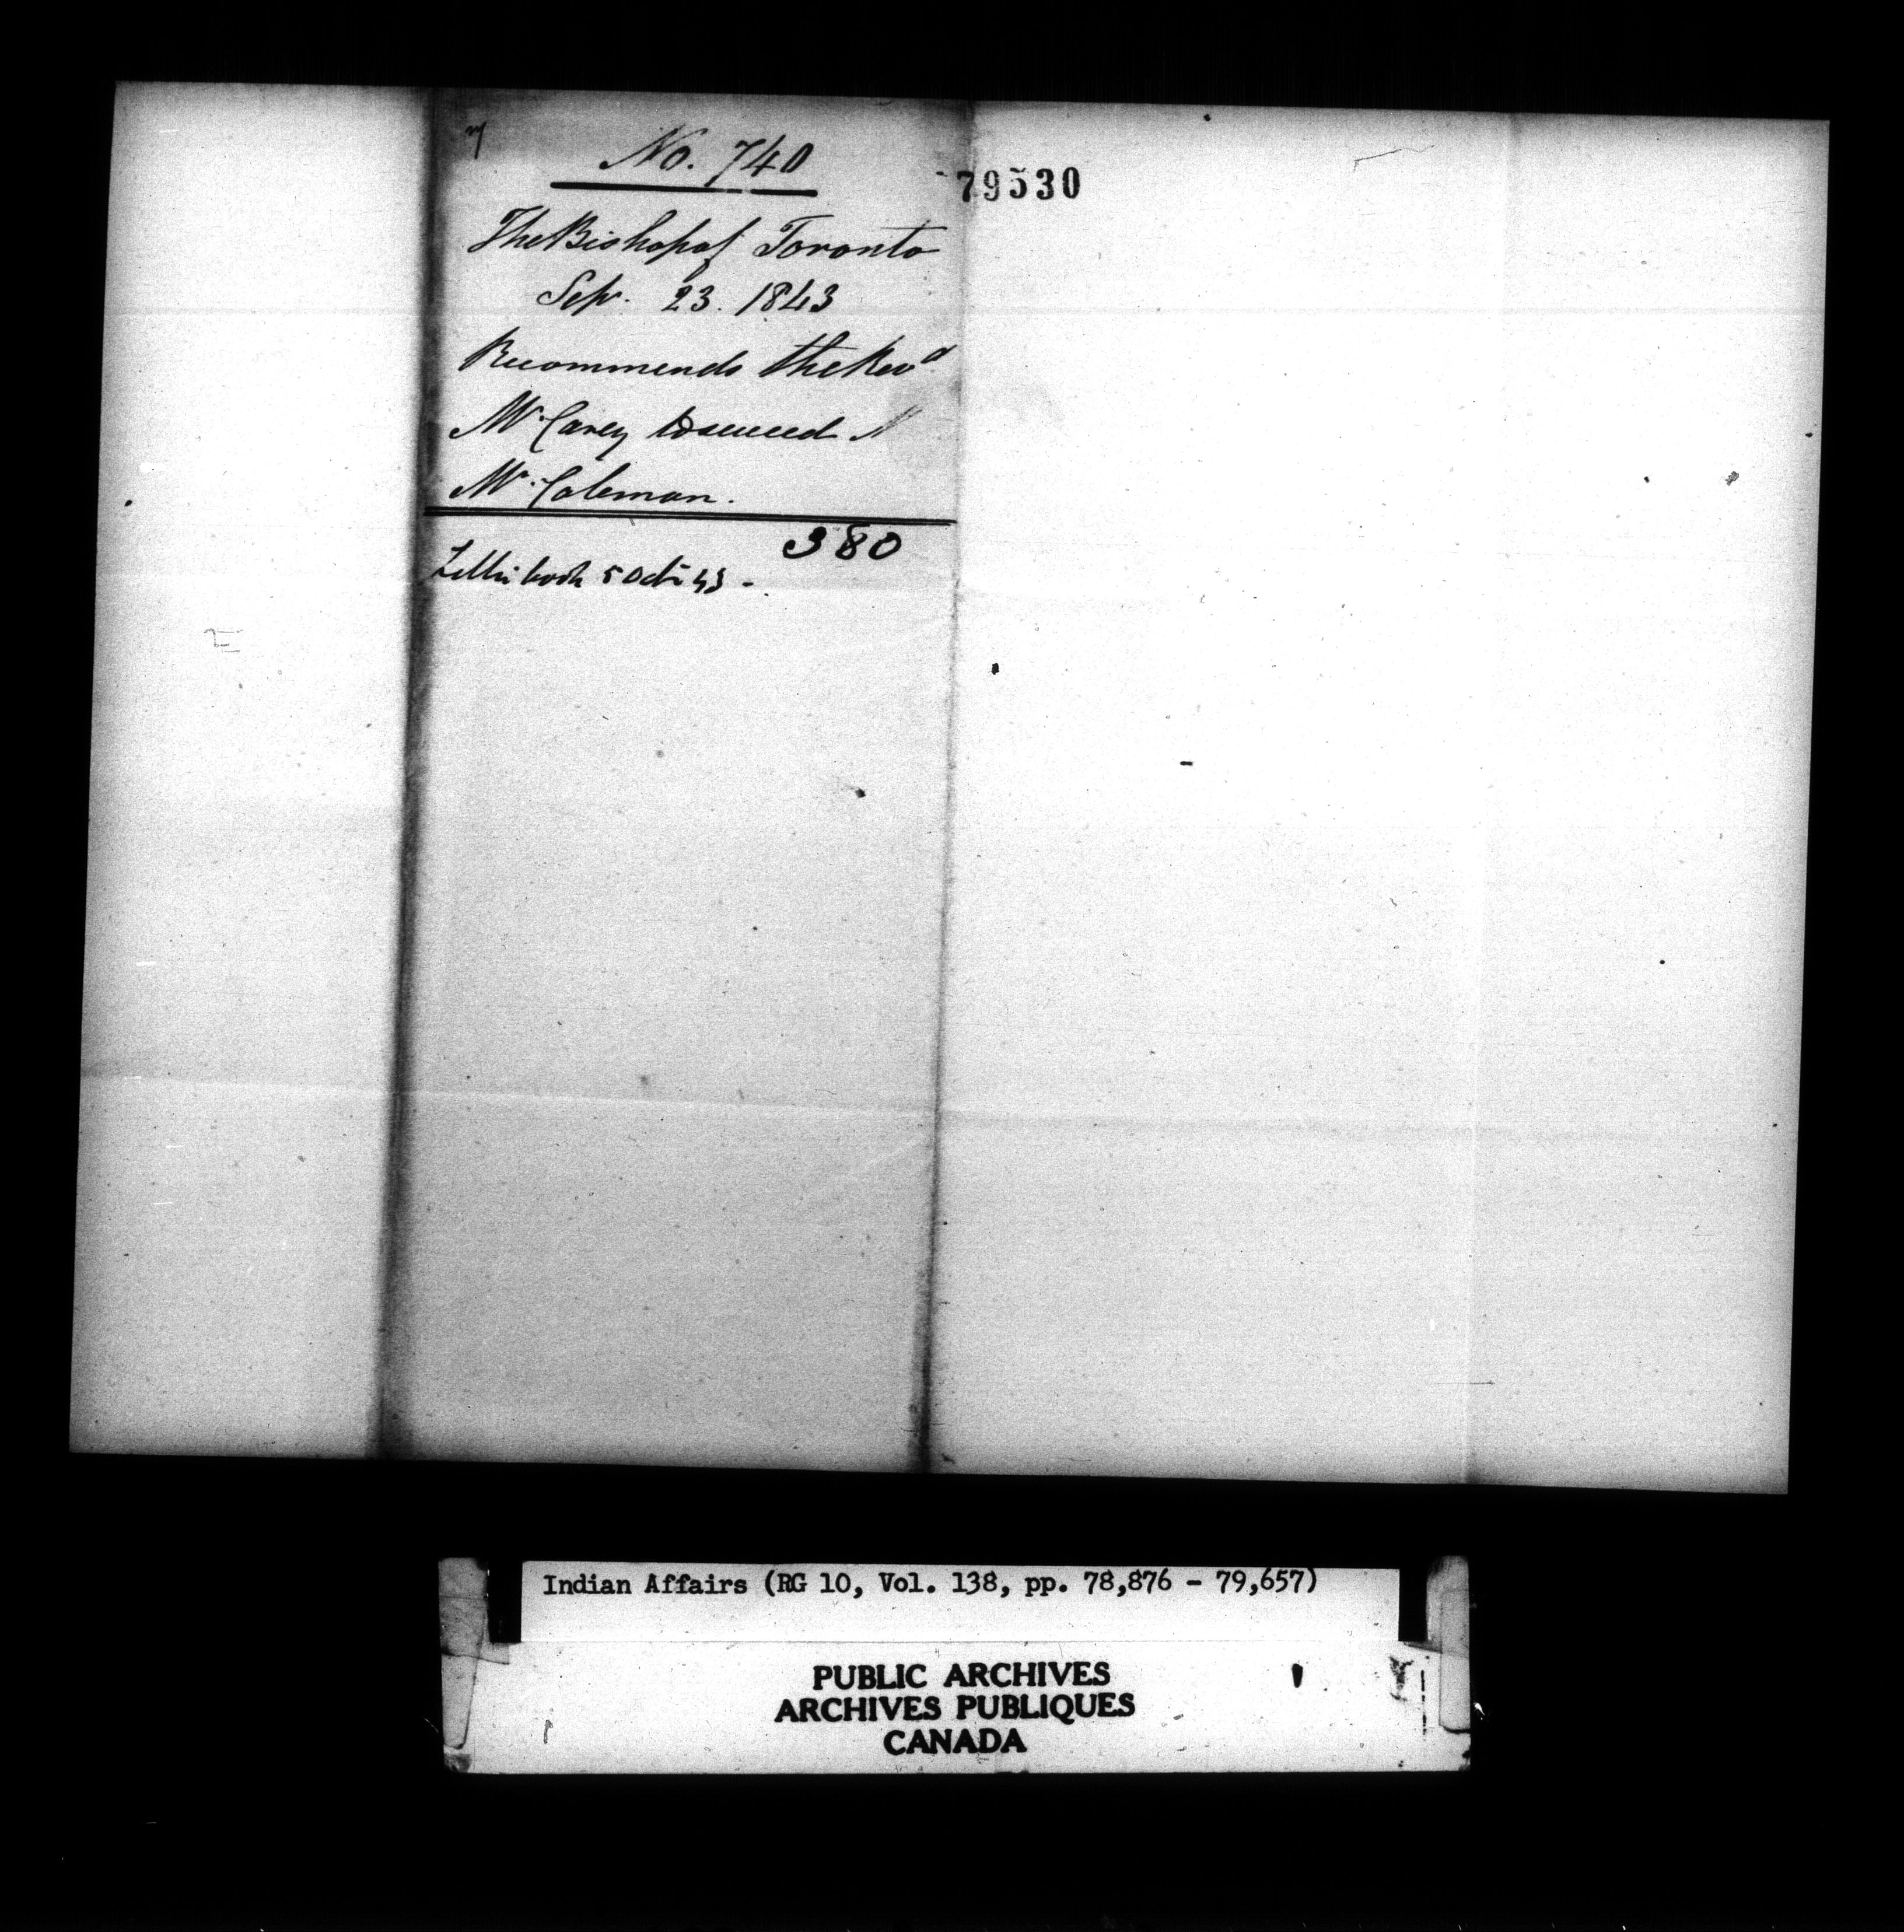 No. 740
79530
The Bishop of Toronto
Sep. 23. 1843
Recommends the Revd.
Mr. Carey to succeed
Mr. Coleman.
380
Letter book 5 Oct 43 -
Indian Affairs (RG 10, Vol. 138, pp. 78,876 - 79,657)
PUBLIC ARCHIVES
ARCHIVES PUBLIQUES
CANADA